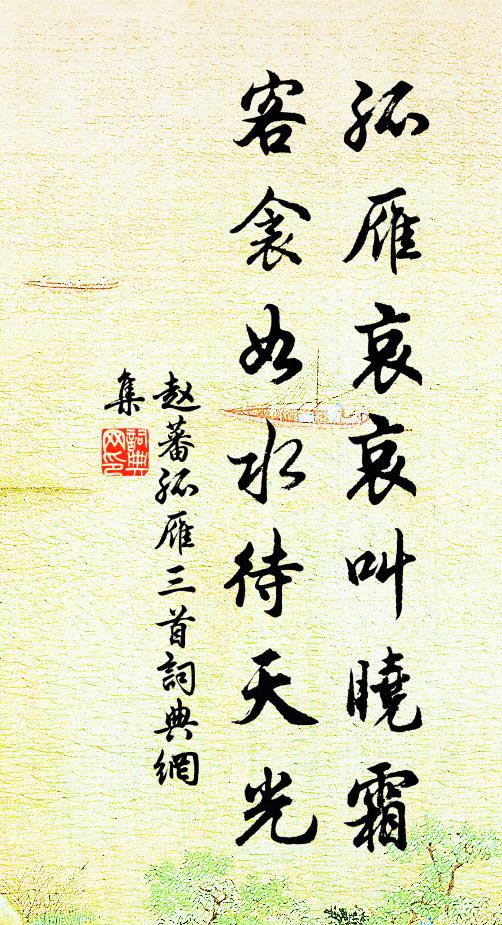 孤雁哀哀叫曉霜
客衾如水待天光
赵蕃孤雁三首詞典網
集
詞典
网印